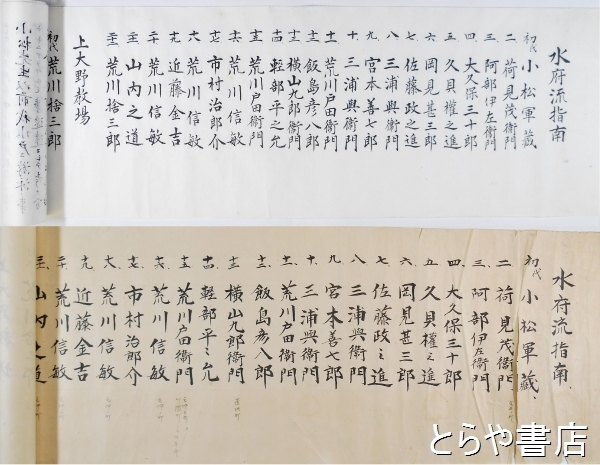 水府流指南
初代 小松軍藏
二 荷見茂衛門
三 阿部伊左衛門
四 大久保三十郎
五 久貝權之進
六 岡見甚三郎
七 佐藤政之進
八 三浦興衛門
九 宮本善七郎
十 三浦興衛門
十一 荒川戸田衛門
十二 飯島彦八郎
十三 横山九郎衛門
十四 軽部平之允
十五 荒川戸田衛門
十六 荒川信敏
十七 市村治郎介
十八 荒川信敏
十九 近藤金吉
二十 荒川信敏
二十一 山内之道
二十二 荒川捨三郎
上大野教場
初代 荒川捨三郎
水府流指南、
初代 小松軍藏、
二、荷見茂衛門
三、阿部伊左衛門
四、大久保三十郎
五、久貝權之進
六、岡見甚三郎
七、佐藤政之進
八、三浦興衛門
九、宮本善七郎
十、三浦興衛門
十一、荒川戸田衛門
十二、飯島彦八郎
十三、横山九郎衛門
十四、軽部平之允
十五、荒川戸田衛門
十六、荒川信敏
十七、市村治郎介
十八、荒川信敏
十九、近藤金吉
二十、荒川信敏
二十一、山内之道
とらや書店